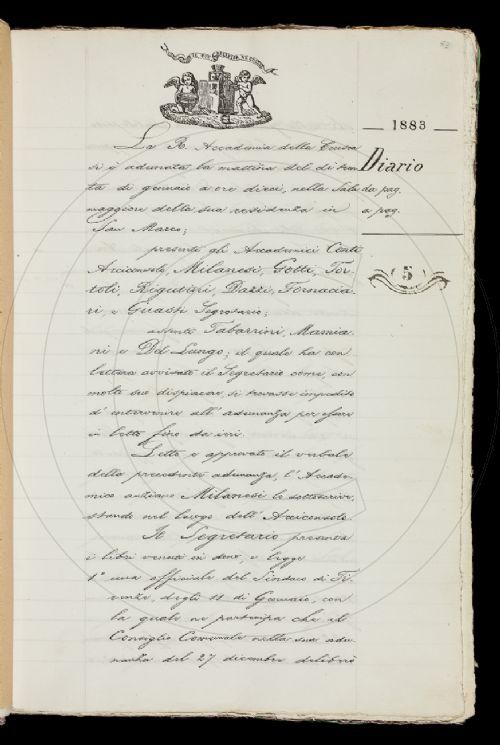 1883
Diario
da pag.
a pag.
5
La R. Accademia della Crusca
si è adunata la mattina del dì tren
ta di gennaio a ore dieci, nella Sala
maggiore della sua residenza in
San Marco;
presenti gli Accademici Conti
Arciconsolo, Milanesi, Gotti, Tor-
toli, Rigutini, Dazzi, Fornacia
ri, e Guasti Segretario;
assenti Tabarrini, Mamia
ni e Del Lungo; il quale ha con
lettera avvisato il Segretario come, con
molto suo dispiacere, si trovasse impedito
d' intervenire all' adunanza per essere
in letto fino da ieri.
Letto e approvato il verbale
della precedente adunanza, l' Accade-
mico anziano Milanesi lo sottoscrive,
stando nel luogo dell' Arciconsolo.
Il Segretario presenta
i libri venuti in dono, e legge
1° una officiale del Sindaco di Fi
renze, degli 11 di Gennaio, con
la quale ne partecipa che il
Consiglio Comunale nella sua adu
nanza del 27 dicembre deliberò